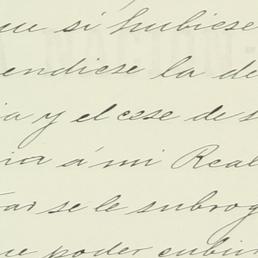 ue si hubiese
endiese la de
ia y el cese de s
ria á mi Real
tar se le subrog
ue poder cubrir